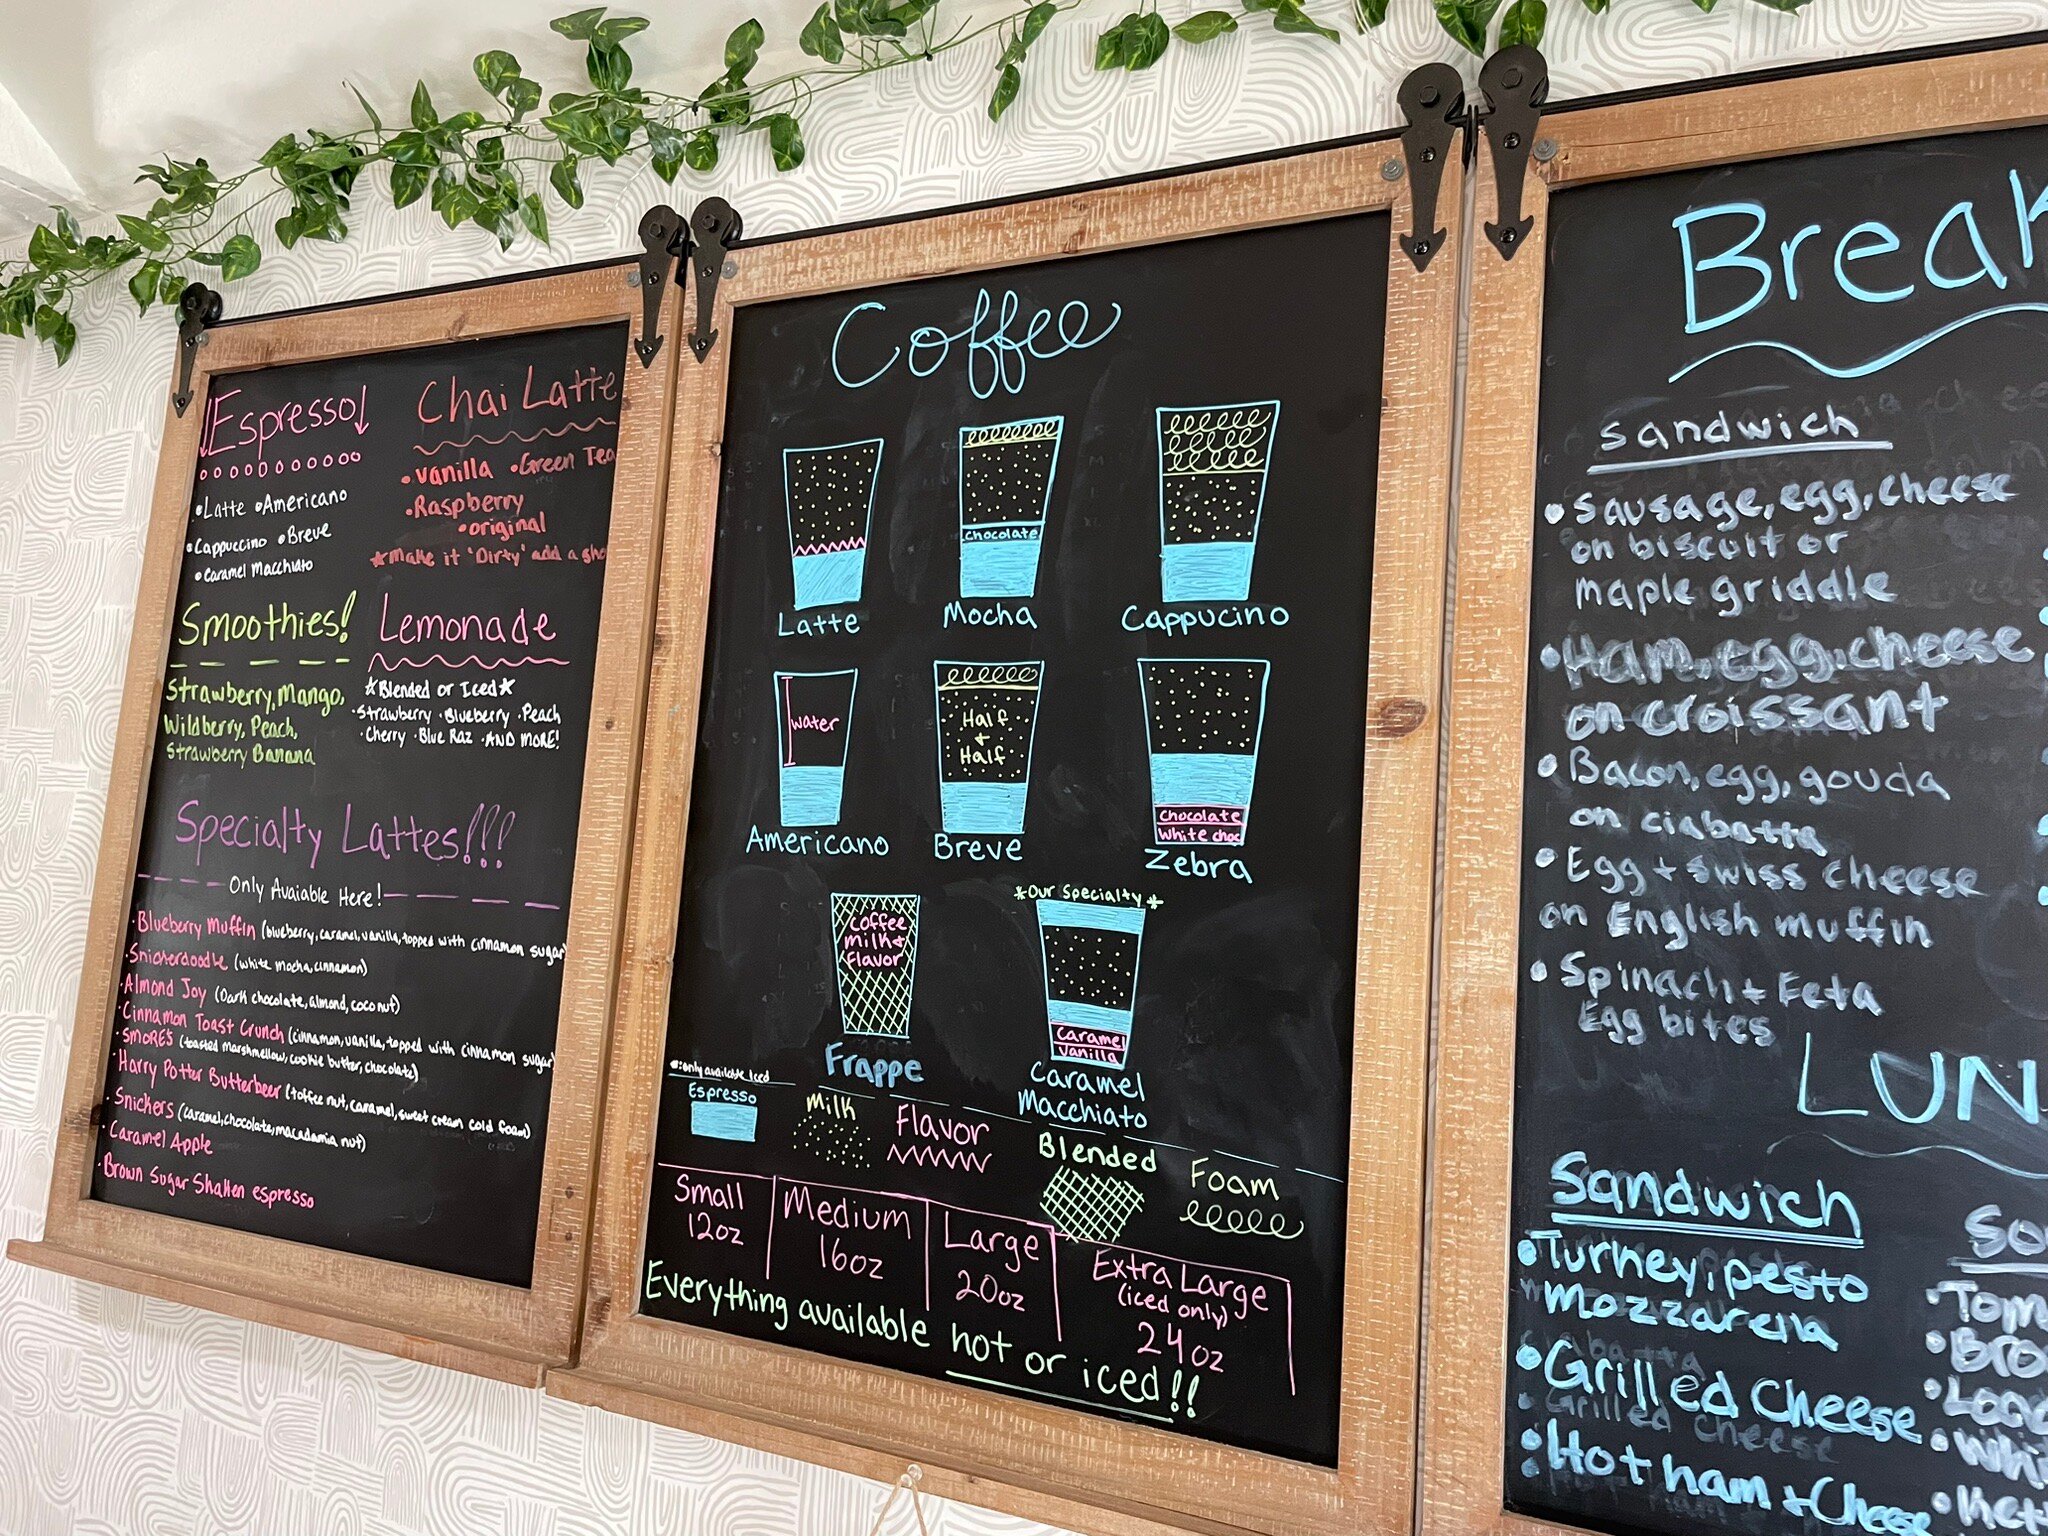 Espresso
• Latte • Americano
• Cappuccino • Breve
• Caramel Macchiato
Chai Latte
• Vanilla • Green Tea
• Raspberry
• original
★ Make it 'Dirty' add a
Smoothies!
Strawberry, Mango,
Wildberry, Peach,
Strawberry Banana
Lemonade
☆ Blended or Iced ☆
· Strawberry · Blueberry · Peach
· Cherry · Blue Raz · AND MORE!
Specialty Lattes!!!
Only Avaiable Here!
· Blueberry Muffin (blueberry, caramel, vanilla, topped with cinnamon sugar)
· Snickerdoodle (white mocha, cinnamon)
· Almond Joy (Dark chocolate, almond, coconut)
· Cinnamon Toast Crunch (cinnamon, vanilla, topped with cinnamon sugar)
· SMORE'S (toasted marshmellow, cookie butter, chocolate)
· Harry Potter Butterbeer (toffee nut, caramel, sweet cream cold foam)
· Snickers (caramel, chocolate, macadamia nut)
· Caramel Apple
· Brown Sugar Shaken espresso
Coffee
Latte
chocolate
Mocha
Cappucino
water
Americano
Half
+
Half
Breve
Chocolate
White choc
Zebra
Coffee
Milk +
Flavor
Frappe
*Our Specialty*
Caramel
Vanilla
Caramel
Macchiato
: only available Iced
Espresso
Milk
Flavor
Blended
Foam
Small
12oz
Medium
16oz
Large
20oz
Extra Large
(iced only)
24oz
Everything available hot or iced!!
Break
Sandwich
• Sausage, egg, cheese
on biscuit or
maple griddle
• Ham, egg, cheese
on croissant
• Bacon, egg, gouda
on ciabatta
• Egg + swiss cheese
on English muffin
• Spinach + Feta
Egg bites
LUN
Sandwich
• Turkey, pesto
mozzarella
• Grilled Cheese
• Hot ham + Cheese
So
• Tom
• Bro